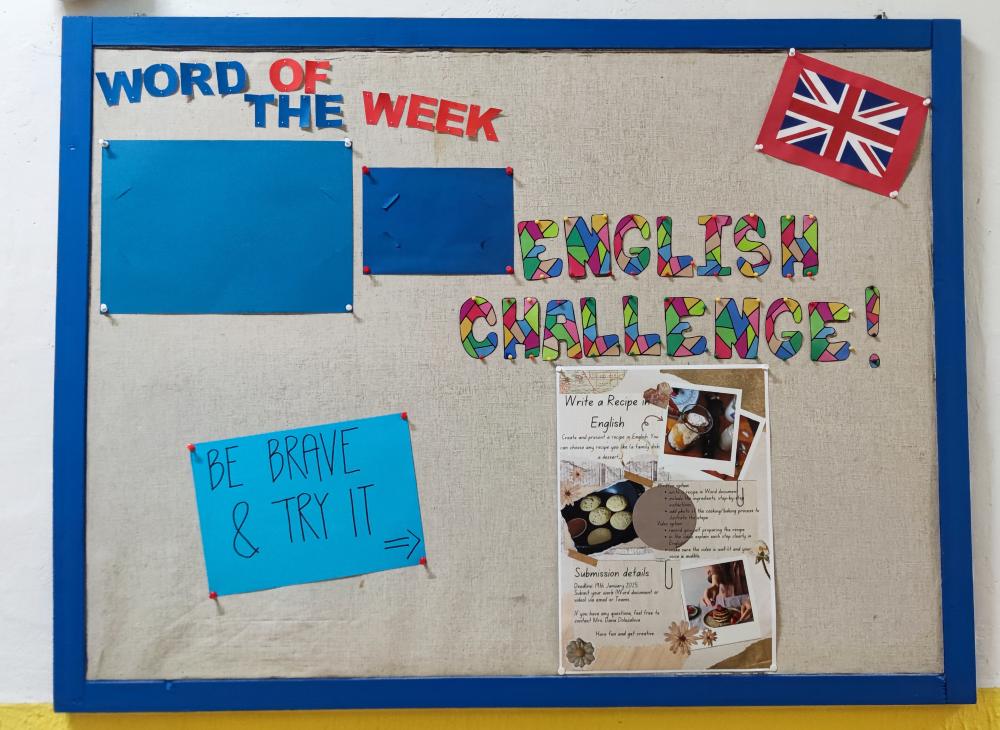 WORD OF
THE WEEK
ENGLISH
CHALLENGE!
BE BRAVE
& TRY IT
⇒
Write a Recipe in
English
Create and present a recipe in English. You
can choose any recipe you like (a family dish
a dessert
Written option:
write a recipe in Word document
include the ingredients, step-by-step
add photo of the cooking/baking process to
illustrate the steps
Video option:
record yourself preparing the recipe
in the video explain each step clearly in
English
make sure the video is well-lit and your
voice is audible
Submission details
Deadline: 19th January 2025
Submit your work (Word document or
video) via email or Teams.
If you have any questions, feel free to
contact Mrs. Dana
Have fun and get creative